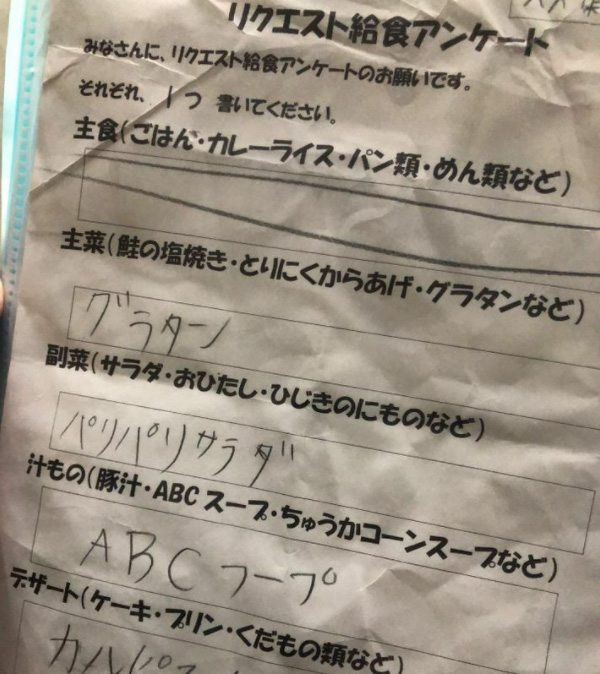 リクエスト給食アンケート
みなさんに、リクエスト給食アンケートのお願いです。
それぞれ、1つ 書いてください。
主食(ごはん・カレーライス・パン類・めん類など)
主菜(鮭の塩焼き・とりにくからあげ・グラタンなど)
グラターン
副菜(サラダ・おひたし・ひじきのにものなど)
パリパリサラダ
汁もの(豚汁・ABCスープ・ちゅうかコーンスープなど)
ABCフープ
デザート(ケーキ・プリン・くだもの類など)